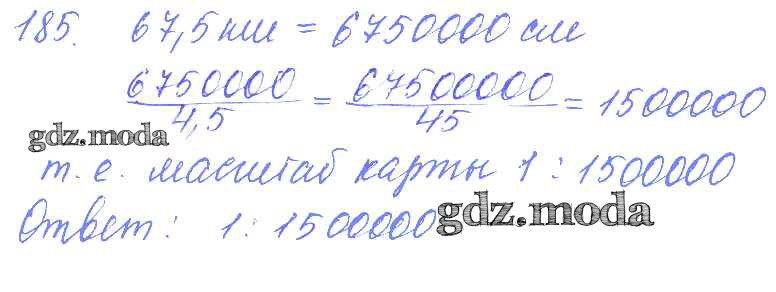 185. 67,5 км = 6750000 см
6750000/4,5 = 67500000/45 = 1500000
gdz.moda
т. е. масштаб карты 1 : 1500000
Ответ: 1 : 1500000
gdz.moda